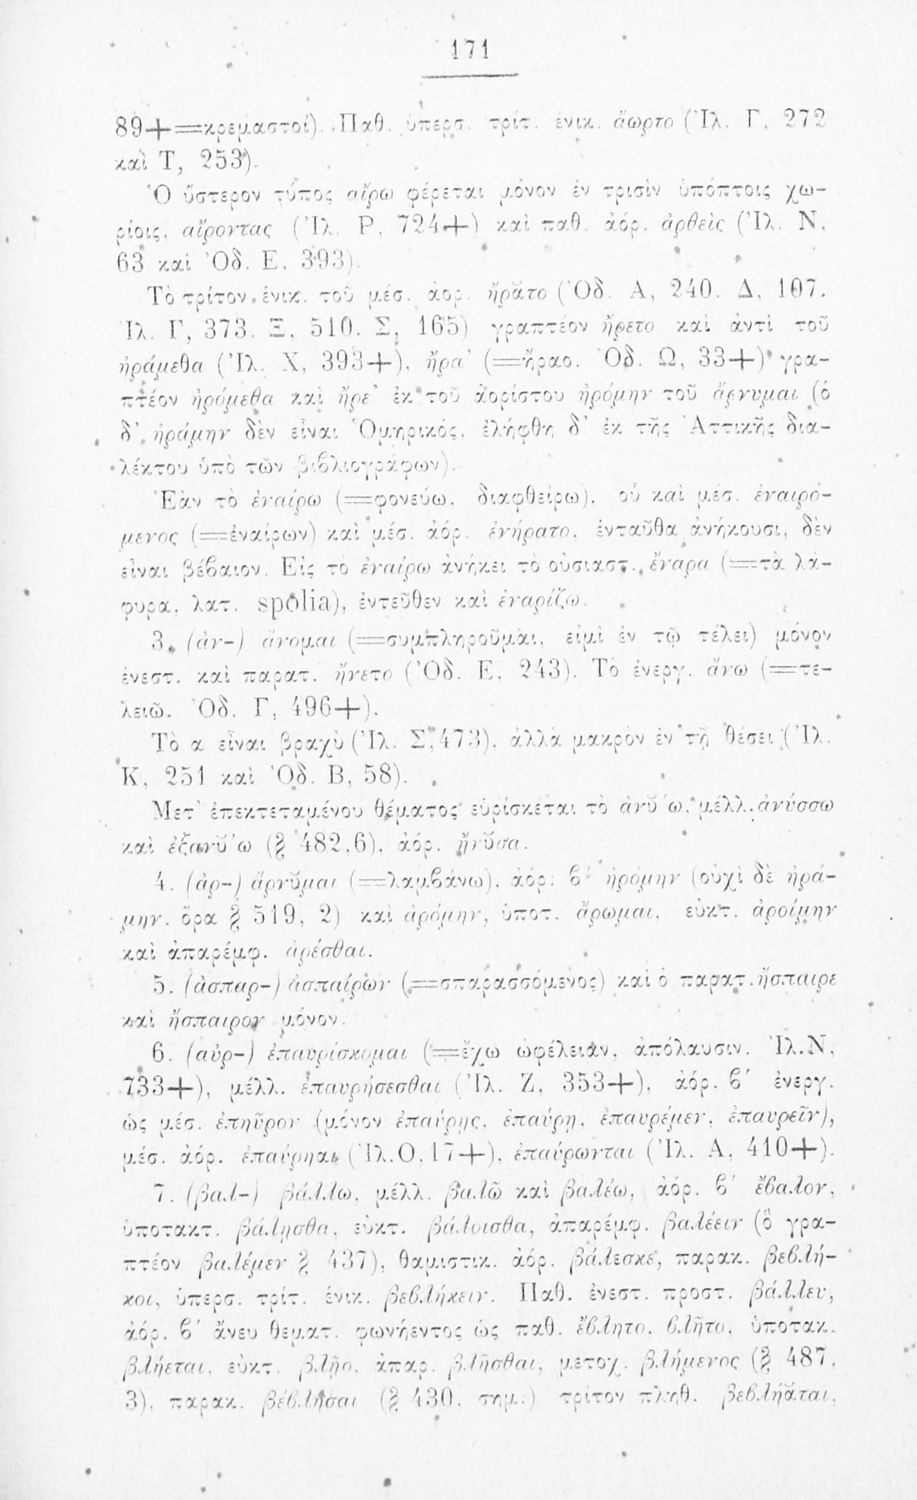 171
89+=κρεμαστοί). Παθ. ὑπερσ. τρίτ. ἑνικ. ἄωρτο (Ἰλ. Γ, 272
καὶ Τ, 253).
Ὁ ὕστερον τύπος αἴρω φέρεται μόνον ἐν τρισὶν ὑπόπτοις χω-
ρίοις, αἴροντας (Ἰλ. Ρ, 724+) καὶ παθ. ἀόρ. ἀρθεὶς (Ἰλ. Ν,
63 καὶ Ὀδ. Ε, 393).
Τὸ τρίτον ἑνικ. τοῦ μέσ. ἀορ. ἤρᾰτο (Ὀδ. Α, 240. Δ, 107.
Ἰλ. Γ, 373. Ξ, 510. Σ, 165) γραπτέον ἤρετο καὶ ἀντὶ τοῦ
ἠράμεθα (Ἰλ. Χ, 393+), ἤρα’ (=ἤραο. Ὀδ. Ω, 33+) γρα-
πτέον ἠρόμεθα καὶ ἤρε’ ἐκ τοῦ ἀορίστου ἠρόμην τοῦ ἄρνυμαι (ὁ
δ’ ἠράμην δὲν εἶναι Ὁμηρικός, ἐλήφθη δ’ ἐκ τῆς Ἀττικῆς δια-
λέκτου ὑπὸ τῶν βιβλιογράφων).
Ἐὰν τὸ ἐναίρω (=φονεύω, διαφθείρω), οὗ καὶ μέσ. ἐναιρό-
μενος (=ἐναίρων) καὶ μέσ. ἀόρ. ἐνήρατο, ἐνταῦθα ἀνήκουσι, δὲν
εἶναι βέβαιον. Εἰς τὸ ἐναίρω ἀνήκει τὸ οὐσιαστ. ἔναρα (=τὰ λά-
φυρα, λατ. spolia), ἐντεῦθεν καὶ ἐναρίζω.
3. (ἀν-) ἄνομαι (=συμπληροῦμαι, εἰμὶ ἐν τῷ τέλει) μόνον
ἐνεστ. καὶ παρατ. ἤνετο (Ὀδ. Ε, 243). Τὸ ἐνεργ. ἄνω (=τε-
λειῶ. Ὀδ. Γ, 496+).
Τὸ α εἶναι βραχὺ (Ἰλ. Σ, 473), ἀλλὰ μακρὸν ἐν τῇ θέσει (Ἰλ.
Κ, 251 καὶ Ὀδ. Β, 58).
Μετ’ ἐπεκτεταμένου θέματος εὑρίσκεται τὸ ἀνῠ́ω, μέλλ. ἀνύσσω
καὶ ἐξανῠ́ω (§ 482,6), ἀόρ. ἤνῠσα.
4. (ἀρ-) ἄρνῠμαι (=λαμβάνω), ἀόρ. β′ ἠρόμην (οὐχὶ δὲ ἠρά-
μην, ὅρα § 519, 2) καὶ ἀρόμην, ὑποτ. ἄρωμαι, εὐκτ. ἀροίμην
καὶ ἀπαρέμφ. ἀρέσθαι.
5. (ἀσπαρ-) ἀσπαίρων (=σπαρασσόμενος) καὶ ὁ παρατ. ἤσπαιρε
καὶ ἤσπαιρον μόνον.
6. (αὐρ-) ἐπαυρίσκομαι (=ἔχω ὠφέλειαν, ἀπόλαυσιν. Ἰλ. Ν,
733+), μέλλ. ἐπαυρήσεσθαι (Ἰλ. Ζ, 353+), ἀόρ. β′ ἐνεργ.
ὡς μέσ. ἐπηῦρον (μόνον ἐπαύρῃς, ἐπαύρῃ, ἐπαυρέμεν, ἐπαυρεῖν),
μέσ. ἀόρ. ἐπαύρηαι (Ἰλ. Ο, 17+), ἐπαύρωνται (Ἰλ. Α, 410+).
7. (βαλ-) βάλλω, μέλλ. βαλῶ καὶ βαλέω, ἀόρ. β′ ἔβαλον,
ὑποτακτ. βάλῃσθα, εὐκτ. βάλοισθα, ἀπαρέμφ. βαλέειν (ὃ γρα-
πτέον βαλέμεν § 437), θαμιστικ. ἀόρ. βάλεσκε, παρακ. βεβλή-
κοι, ὑπερσ. τρίτ. ἑνικ. βεβλήκειν. Παθ. ἐνεστ. προστ. βάλλευ,
ἀόρ. β′ ἄνευ θεματ. φωνήεντος ὡς παθ. ἔβλητο, βλῆτο, ὑποτακ.
βλήεται, εὐκτ. βλῇο, ἀπαρ. βλῆσθαι, μετοχ. βλήμενος (§ 487,
3), παρακ. βέβλησαι (§ 430, σημ.) τρίτον πληθ. βεβλήᾰται,